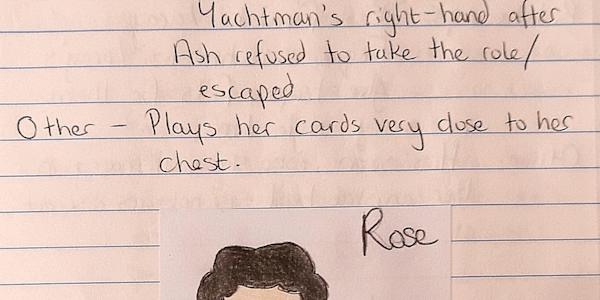 Yachtman's right-hand after
Ash refused to take the role/
escaped
Other - Plays her cards very close to her
chest.
Rose